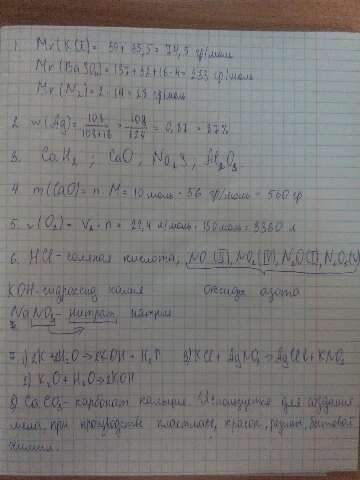 1. Mr(KCl) = 39 + 35,5 = 74,5 гр/моль
Mr(BaSO₄) = 137 + 32 + 16·4 = 233 гр/моль
Mr(N₂) = 2 · 14 = 28 гр/моль
2. w(Ag) = 108/108+16 = 108/124 = 0,87 = 87%
3. CaH₂ ; CaO ; Na₂S ; Al₂O₃
4. m(CaO) = n · M = 10 моль · 56 гр/моль = 560 гр
5. v(O₂) = V₂ · n = 22,4 л/моль · 150 моль = 3360 л
6. HCl - соляная кислота, NO (II), NO₂ (IV), N₂O (I), N₂O₅ (V)
KOH - гидроксид калия оксиды азота
NaNO₃ - нитрат натрия
7. 1) 2K + 2H₂O → 2KOH + H₂↑ 3) KCl + AgNO₃ → AgCl↓ + KNO₃
2) K₂O + H₂O → 2KOH
8) CaCO₃ - карбонат кальция. Используется для создания
мела, при производстве пластмасс, красок, резины, бытовой
химии.